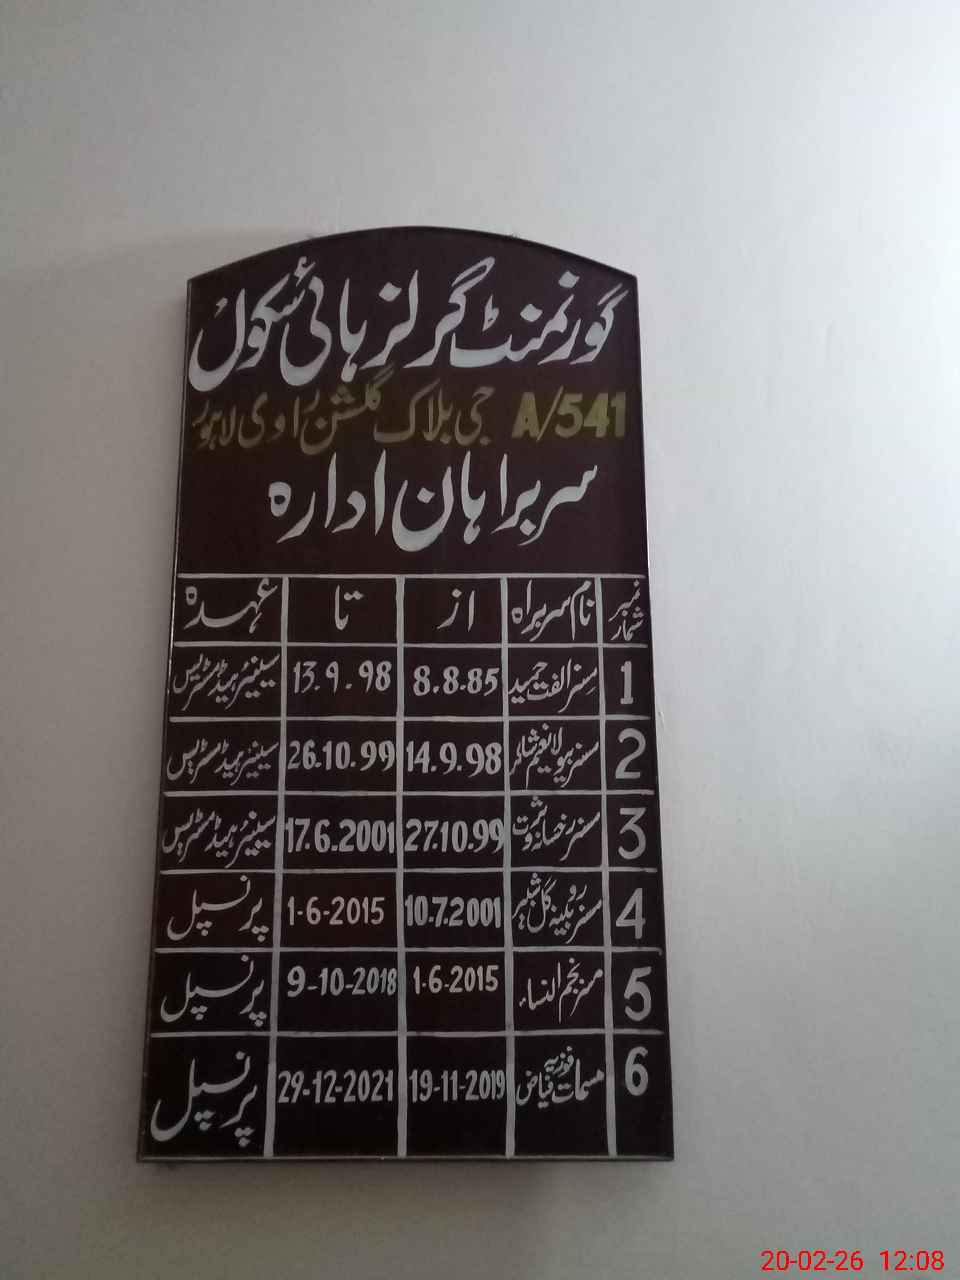 گورنمنٹ گرلز ہائی سکول
541/A جی بلاک گلشن راوی لاہور
سربراہان ادارہ
نمبر شمار نام سربراہ از تا عہدہ
1 مسز الفت حمید 8.8.85 13.9.98 سینئر ہیڈ مسٹریس
2 مسز ہیولا نعیم شاکر 14.9.98 26.10.99 سینئر ہیڈ مسٹریس
3 مسز رخسانہ عشرت 27.10.99 17.6.2001 سینئر ہیڈ مسٹریس
4 مسز روبینہ گل شبیر 10.7.2001 1-6-2015 پرنسپل
5 مسز نجم النساء 1-6-2015 9-10-2018 پرنسپل
6 مسمات فوزیہ فیاض 19-11-2019 29-12-2021 پرنسپل
20-02-26 12:08